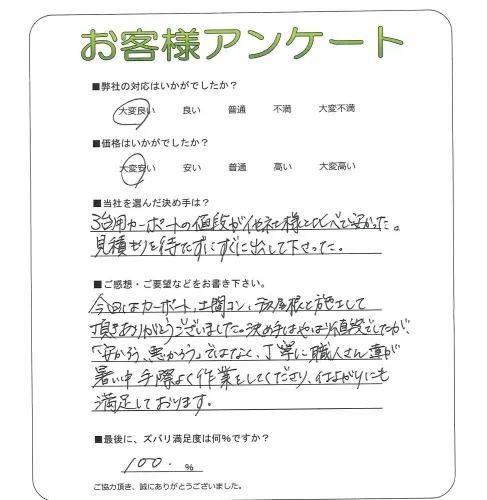 お客様アンケート
■弊社の対応はいかがでしたか？
大変良い 良い 普通 不満 大変不満
■価格はいかがでしたか？
大変安い 安い 普通 高い 大変高い
■当社を選んだ決め手は？
3台用カーポートの値段が他社様と比べて安かった。
見積もりを待たずにすぐに出して下さった。
■ご感想・ご要望などをお書き下さい。
今回はカーポート、土間コン、 屋根と施工して
頂きありがとうございました。決め手はやはり値段でしたが、
「安かろう、悪かろう」ではなく、丁寧に職人さん達が
暑い中手際よく作業をしてくださり、仕上がりにも
満足しております。
■最後に、ズバリ満足度は何％ですか？
100. ％
ご協力頂き、誠にありがとうございました。